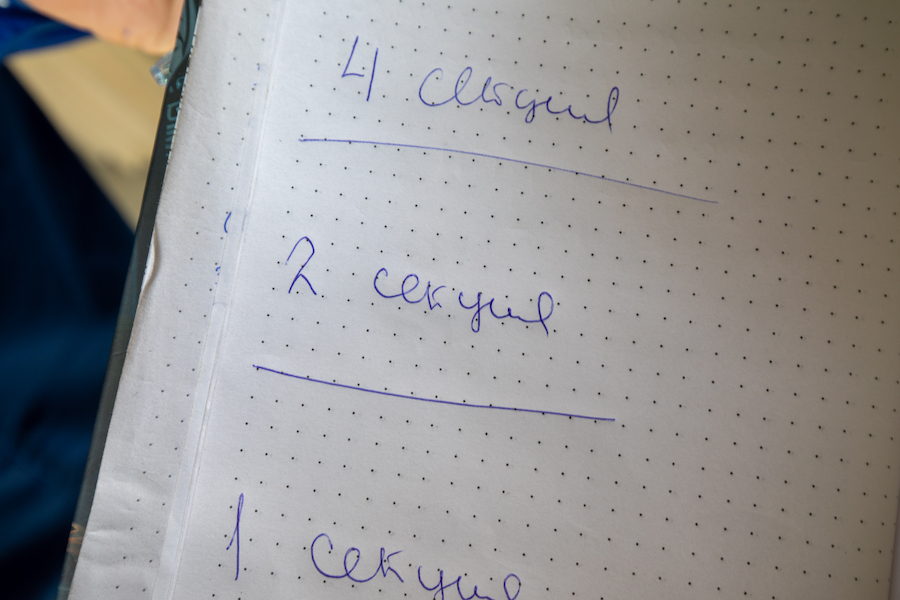 4 секунд
2 секунд
1 секунд